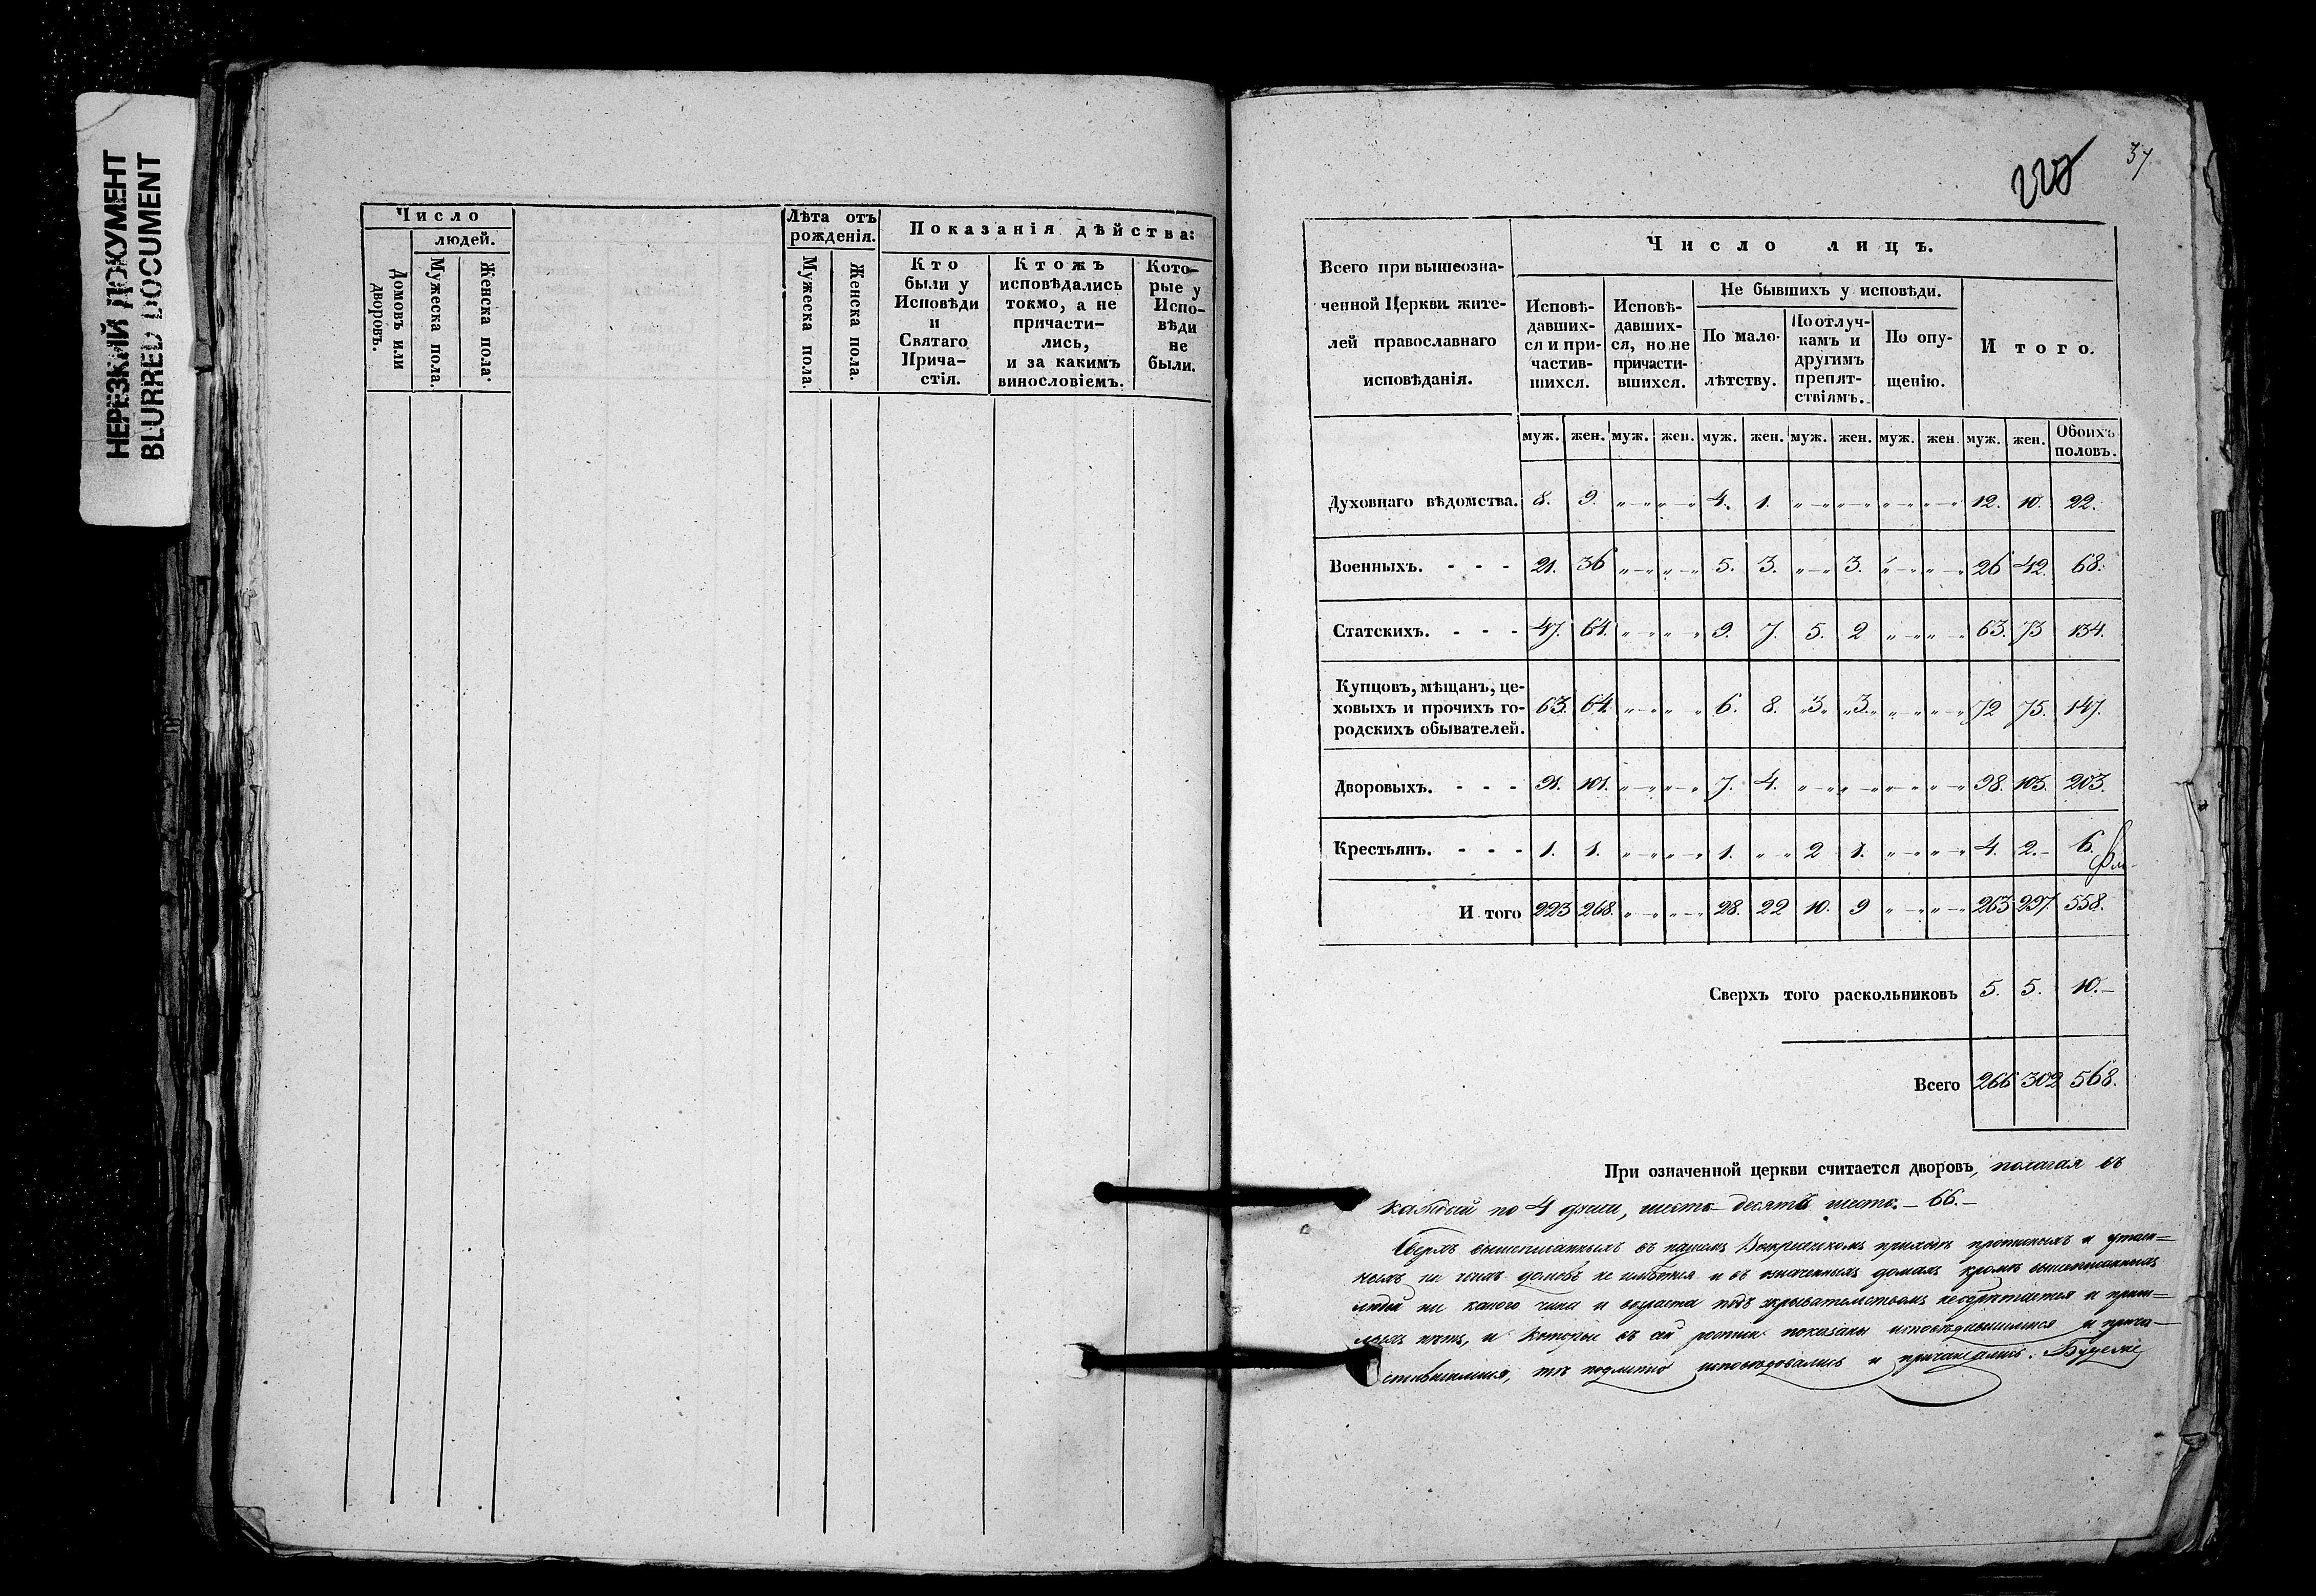 НЕРЕЗКИЙ ДОКУМЕНТ
BLURRED DOCUMENT
Число
людей.
Домовъ или дворовъ.
Мужеска пола.
Женска пола.
Лѣта отъ
рожденія.
Мужеска пола.
Женска пола.
Показанія дѣйства:
Кто
были у
Исповѣди
и
Святаго
Прича-
стія.
Ктожъ
исповѣдались
токмо, а не
причасти-
лись,
и за какимъ
винословіемъ.
Кото-
рые у
Испо-
вѣди
не
были.
37
Всего при вышеозна-
ченной Церкви жите-
лей православнаго
исповѣданія.
Число лицъ.
Исповѣ-
давших-
ся и при-
частив-
шихся.
Исповѣ-
давших-
ся, но не
причасти-
вшихся.
Не бывшихъ у исповѣди.
По мало-
лѣтству.
По отлуч-
камъ и
другимъ
препят-
ствіямъ.
По опу-
щенію.
Итого.
муж. жен. муж. жен. муж. жен. муж. жен. муж. жен. муж. жен. Обоихъ половъ.
Духовнаго вѣдомства. 8. 9. „ — „ „ — „ 4. 1. „ — „ „ — „ „ — „ „ — „ 12. 10. 22.
Военныхъ. - - - 21. 36 „ — „ „ — „ 5. 3. „ — „ 3. „ — „ „ — „ 26 42. 68.
Статскихъ. - - - 47. 64. „ „ „ „ 9. 7. 5. 2 „ — „ „ — „ 63. 73 134.
Купцовъ, мѣщанъ, це-
ховыхъ и прочихъ го-
родскихъ обывателей. 63. 64. „ — „ „ „ 6. 8. „3„ „3„ „ — „ „ — „ 72 75. 147.
Дворовыхъ. - - - 91. 101. „ — „ „ — „ 7. 4. „ — „ „ — „ „ — „ „ — „ 98. 105. 203.
Крестьянъ. - - - 1. 1. „ — „ „ — „ 1. „ — „ 2 1. „ — „ „ — „ 4. 2.- 6.
И того 223 268. „ — „ „ — „ 28. 22 10. 9 „ — „ „ — „ 263 297. 558.
Сверхъ того раскольниковъ 5. 5. 10.—
Всего 266 302 568.
При означенной церкви считается дворовъ, полагая въ
каждой по 4 души, шесть десятъ шесть. — 66. —
Сверхъ вышеписанныхъ въ нашемъ приходѣ прописныхъ и утаен=
ныхъ ни чьихъ домовъ не имѣется и въ означенныхъ домахъ кромѣ вышеписанныхъ
людей ни какого чина и возраста подъ укрывательствомъ необрѣтается и приш=
лыхъ нѣтъ, и которые въ сей росписи показаны исповѣдавшимися и прича—
стившимися, тѣ подлинно исповѣдовались и причащались. Буде же